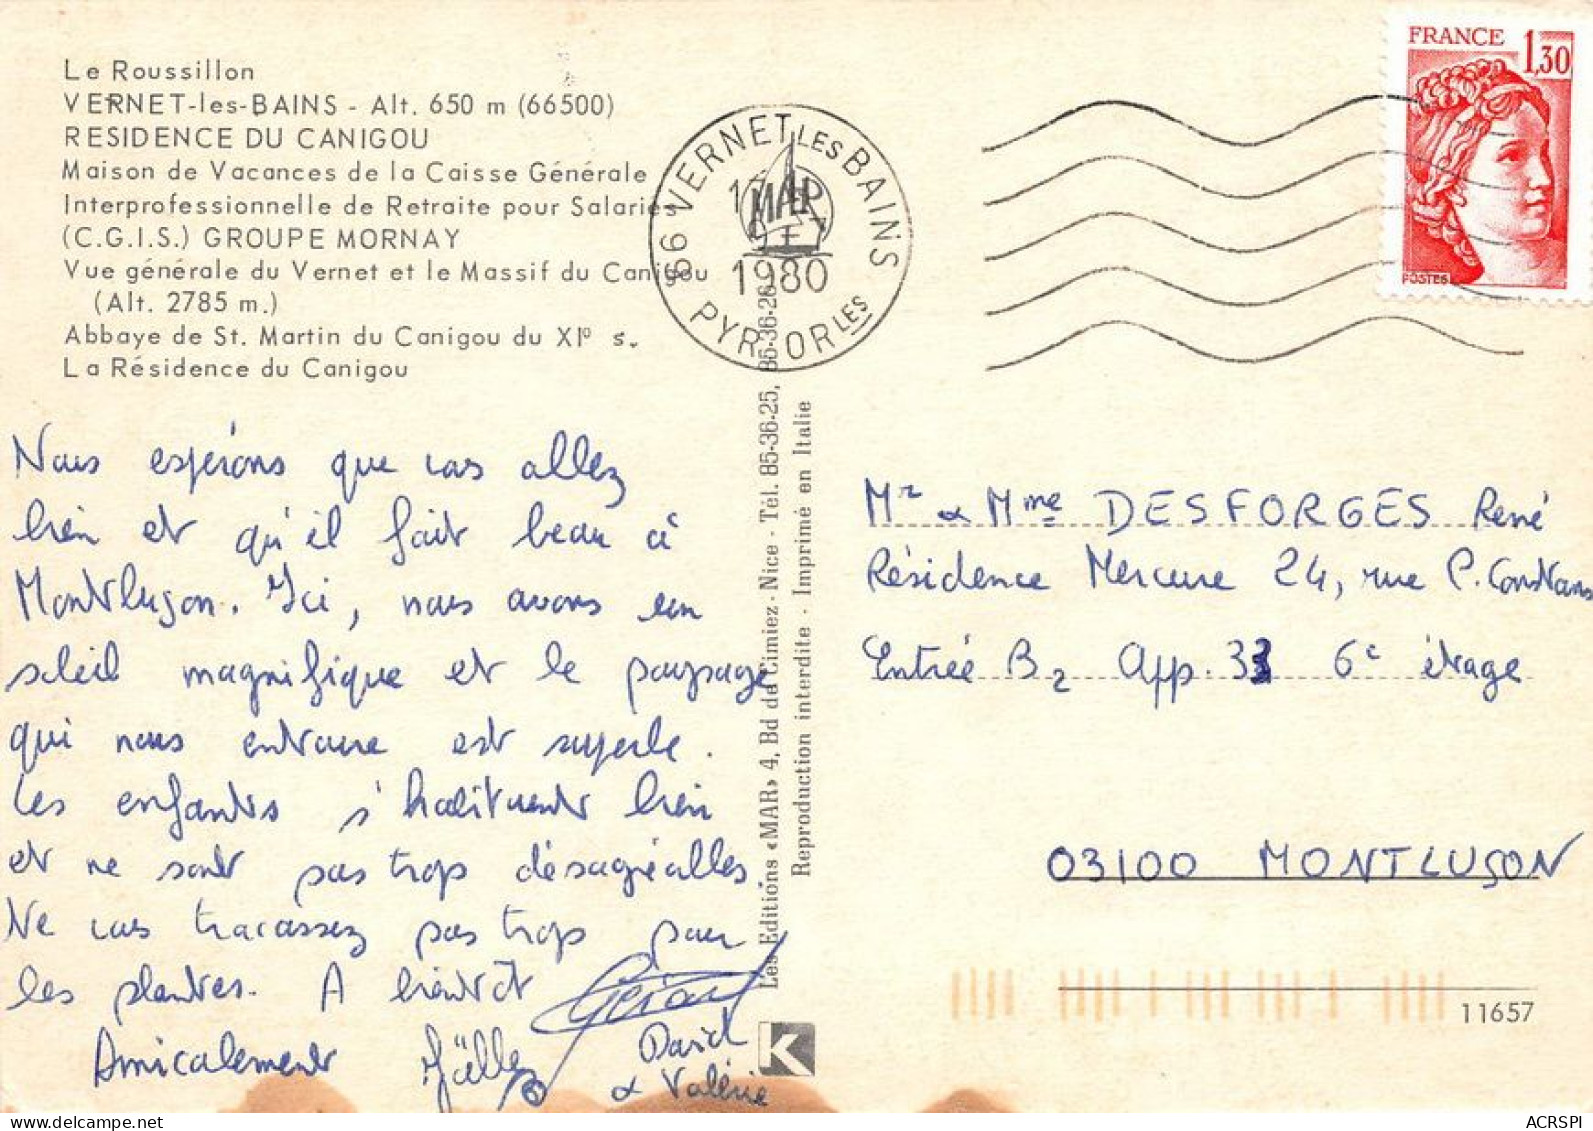 Le Roussillon
VERNET-les-BAINS - Alt. 650 m (66500)
RESIDENCE DU CANIGOU
Maison de Vacances de la Caisse Générale
Interprofessionnelle de Retraite pour Salariés
(C.G.I.S.) GROUPE MORNAY
Vue générale du Vernet et le Massif du Canigou
(Alt. 2785 m.)
Abbaye de St. Martin du Canigou du XIº s.
La Résidence du Canigou
66 VERNET LES BAINS
1980
PYR. OR LES
MAR
FRANCE 1,30
POSTES
Nous espérons que vous allez
bien et qu'il fait beau à
Montluçon. Ici, nous avons un
soleil magnifique et le paysage
qui nous entoure est superbe.
Les enfants s'habituent bien
et ne sont pas trop désagréables.
Ne vous tracassez pas trop pour
les plantes. A bientôt
Amicalement Gérard
David
& Valérie
Les Editions «MAR» 4, Bd de Cimiez - Nice - Tél. 85-36-25, 85-36-26
Reproduction interdite - Imprimé en Italie
K
Mr & Mme DESFORGES René
Résidence Mercure 24, rue P. Constans
Entrée B2 App. 33 6e étage
03100 MONTLUÇON
11657
ACRSPI